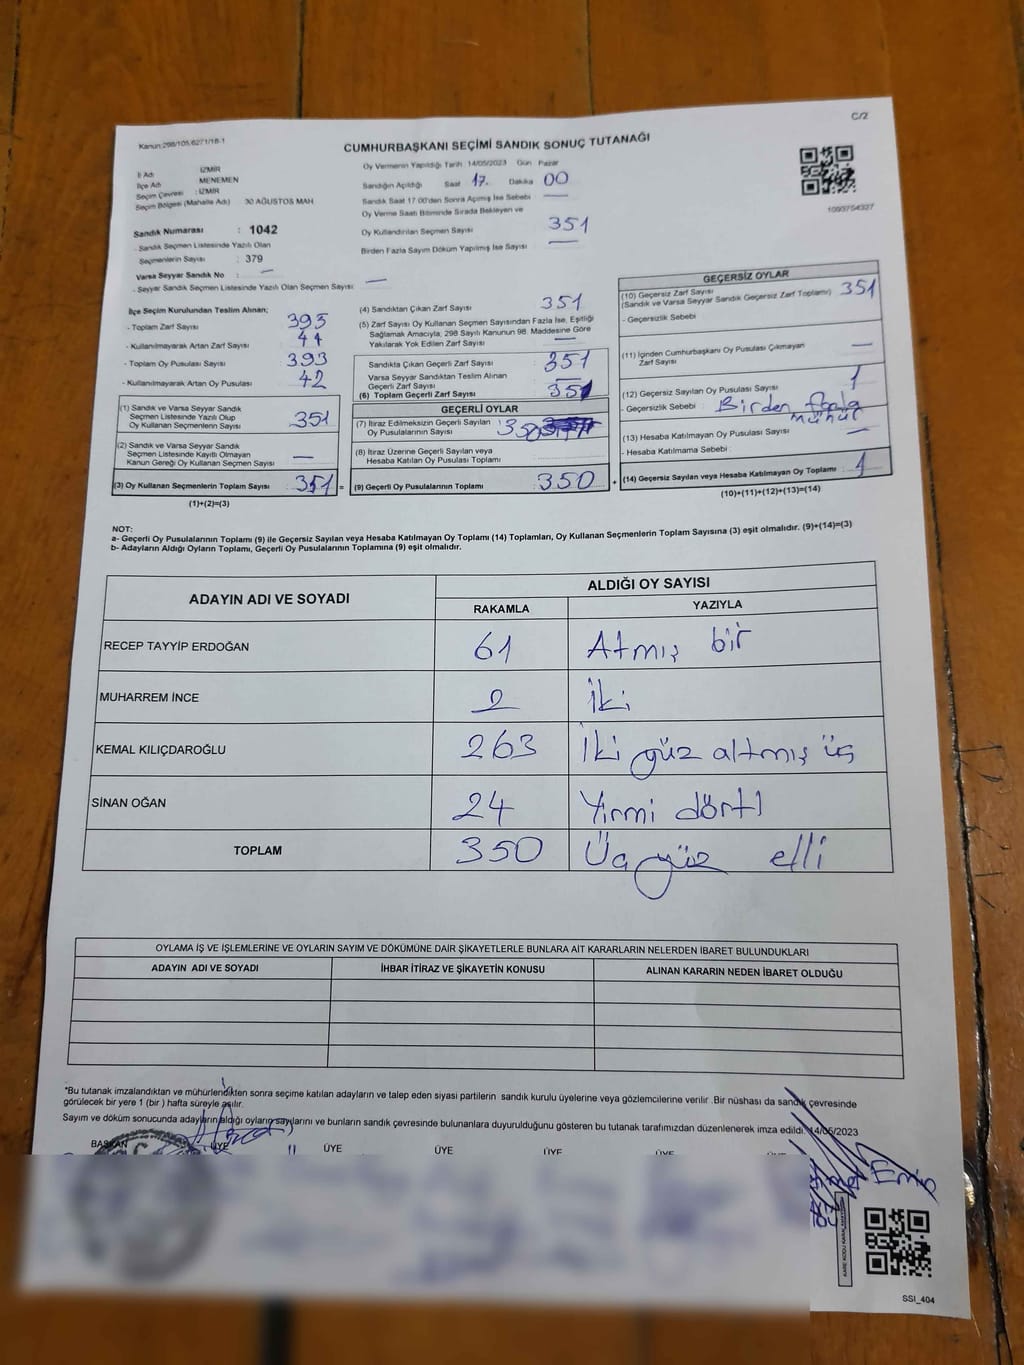 C/2
Kanun:298/105,6271/18-1
CUMHURBAŞKANI SEÇİMİ SANDIK SONUÇ TUTANAĞI
İl Adı : İZMİR
İlçe Adı : MENEMEN
Seçim Çevresi : İZMİR
Seçim Bölgesi (Mahalle Adı) : 30 AĞUSTOS MAH
Sandık Numarası : 1042
- Sandık Seçmen Listesinde Yazılı Olan
Seçmenlerin Sayısı : 379
Varsa Seyyar Sandık No : —
- Seyyar Sandık Seçmen Listesinde Yazılı Olan Seçmen Sayısı : —
Oy Vermenin Yapıldığı Tarih :14/05/2023 Gün Pazar
Sandığın Açıldığı Saat 17. Dakika 00
Sandık Saat 17:00'den Sonra Açımış İse Sebebi —
Oy Verme Saati Bitiminde Sırada Bekleyen ve
Oy Kullandırılan Seçmen Sayısı 351
Birden Fazla Sayım Döküm Yapılmış İse Sayısı —
İlçe Seçim Kurulundan Teslim Alınan;
- Toplam Zarf Sayısı 395
- Kullanılmayarak Artan Zarf Sayısı 44
- Toplam Oy Pusulası Sayısı 393
- Kullanılmayarak Artan Oy Pusulası 42
(1) Sandık ve Varsa Seyyar Sandık
Seçmen Listesinde Yazılı Olup
Oy Kullanan Seçmenlerin Sayısı 351
(2) Sandık ve Varsa Seyyar Sandık
Seçmen Listesinde Kayıtlı Olmayan
Kanun Gereği Oy Kullanan Seçmen Sayısı —
(3) Oy Kullanan Seçmenlerin Toplam Sayısı 351 =
(1)+(2)=(3)
(4) Sandıktan Çıkan Zarf Sayısı 351
(5) Zarf Sayısı Oy Kullanan Seçmen Sayısından Fazla İse, Eşitliği
Sağlamak Amacıyla, 298 Sayılı Kanunun 98. Maddesine Göre
Yakılarak Yok Edilen Zarf Sayısı —
Sandıkta Çıkan Geçerli Zarf Sayısı 351
Varsa Seyyar Sandıktan Teslim Alınan
Geçerli Zarf Sayısı —
(6) Toplam Geçerli Zarf Sayısı 351
GEÇERLİ OYLAR
(7) İtiraz Edilmeksizin Geçerli Sayılan
Oy Pusulalarının Sayısı 350
(8) İtiraz Üzerine Geçerli Sayılan veya
Hesaba Katılan Oy Pusulası Toplamı
(9) Geçerli Oy Pusulalarının Toplamı 350 +
GEÇERSİZ OYLAR
(10) Geçersiz Zarf Sayısı
(Sandık ve Varsa Seyyar Sandık Geçersiz Zarf Toplamı) 351
- Geçersizlik Sebebi :
(11) İçinden Cumhurbaşkanı Oy Pusulası Çıkmayan
Zarf Sayısı —
(12) Geçersiz Sayılan Oy Pusulası Sayısı 1
- Geçersizlik Sebebi : Birden fazla
mühür
(13) Hesaba Katılmayan Oy Pusulası Sayısı —
- Hesaba Katılmama Sebebi :
(14) Geçersiz Sayılan veya Hesaba Katılmayan Oy Toplamı 1
(10)+(11)+(12)+(13)=(14)
NOT:
a- Geçerli Oy Pusulalarının Toplamı (9) ile Geçersiz Sayılan veya Hesaba Katılmayan Oy Toplamı (14) Toplamları, Oy Kullanan Seçmenlerin Toplam Sayısına (3) eşit olmalıdır. (9)+(14)=(3)
b- Adayların Aldığı Oyların Toplamı, Geçerli Oy Pusulalarının Toplamına (9) eşit olmalıdır.
ADAYIN ADI VE SOYADI
ALDIĞI OY SAYISI
RAKAMLA YAZIYLA
RECEP TAYYİP ERDOĞAN 61 Atmış bir
MUHARREM İNCE 2 İki
KEMAL KILIÇDAROĞLU 263 İki yüz altmış üç
SİNAN OĞAN 24 Yirmi dört
TOPLAM 350 Üç yüz elli
OYLAMA İŞ VE İŞLEMLERİNE VE OYLARIN SAYIM VE DÖKÜMÜNE DAİR ŞİKAYETLERLE BUNLARA AİT KARARLARIN NELERDEN İBARET BULUNDUKLARI
ADAYIN ADI VE SOYADI İHBAR İTİRAZ VE ŞİKAYETİN KONUSU ALINAN KARARIN NEDEN İBARET OLDUĞU
*Bu tutanak imzalandıktan ve mühürlendikten sonra seçime katılan adayların ve talep eden siyasi partilerin sandık kurulu üyelerine veya gözlemcilerine verilir .Bir nüshası da sandık çevresinde
görülecek bir yere 1 (bir ) hafta süreyle asılır.
Sayım ve döküm sonucunda adayların aldığı oyların sayılarını ve bunların sandık çevresinde bulunanlara duyurulduğunu gösteren bu tutanak tarafımızdan düzenlenerek imza edildi. 14/05/2023
BAŞKAN ÜYE ÜYE ÜYE ÜYE ÜYE
Emin
SSI_404